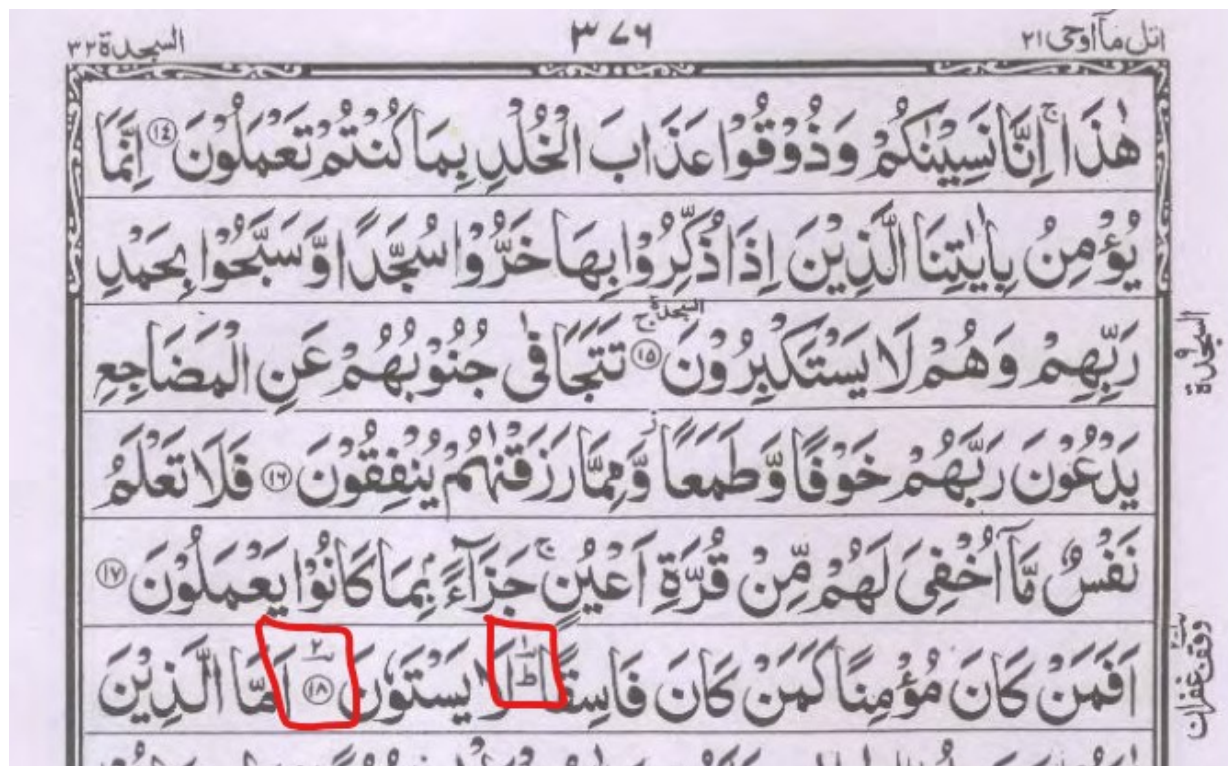 اتل مآ اوحی ٢١
٣٧٦
السجدة ٣٢
هٰذَا ۚ اِنَّا نَسِيْنٰكُمْ وَذُوْقُوْا عَذَابَ الْخُلْدِ بِمَا كُنْتُمْ تَعْمَلُوْنَ ١٤ اِنَّمَا
يُؤْمِنُ بِاٰيٰتِنَا الَّذِيْنَ اِذَا ذُكِّرُوْا بِهَا خَرُّوْا سُجَّدًا وَّسَبَّحُوْا بِحَمْدِ
رَبِّهِمْ وَهُمْ لَا يَسْتَكْبِرُوْنَ ١٥ السجدة ج تَتَجَافٰى جُنُوْبُهُمْ عَنِ الْمَضَاجِعِ
السجدة ٩
يَدْعُوْنَ رَبَّهُمْ خَوْفًا وَّطَمَعًا ز وَّمِمَّا رَزَقْنٰهُمْ يُنْفِقُوْنَ ١٦ فَلَا تَعْلَمُ
نَفْسٌ مَّآ اُخْفِيَ لَهُمْ مِّنْ قُرَّةِ اَعْيُنٍ ۚ جَزَآءًۢ بِمَا كَانُوْا يَعْمَلُوْنَ ١٧
اَفَمَنْ كَانَ مُؤْمِنًا كَمَنْ كَانَ فَاسِقًا ١ ط لَا يَسْتَوٗنَ ٢ ١٨ اَمَّا الَّذِيْنَ
وقف غفران